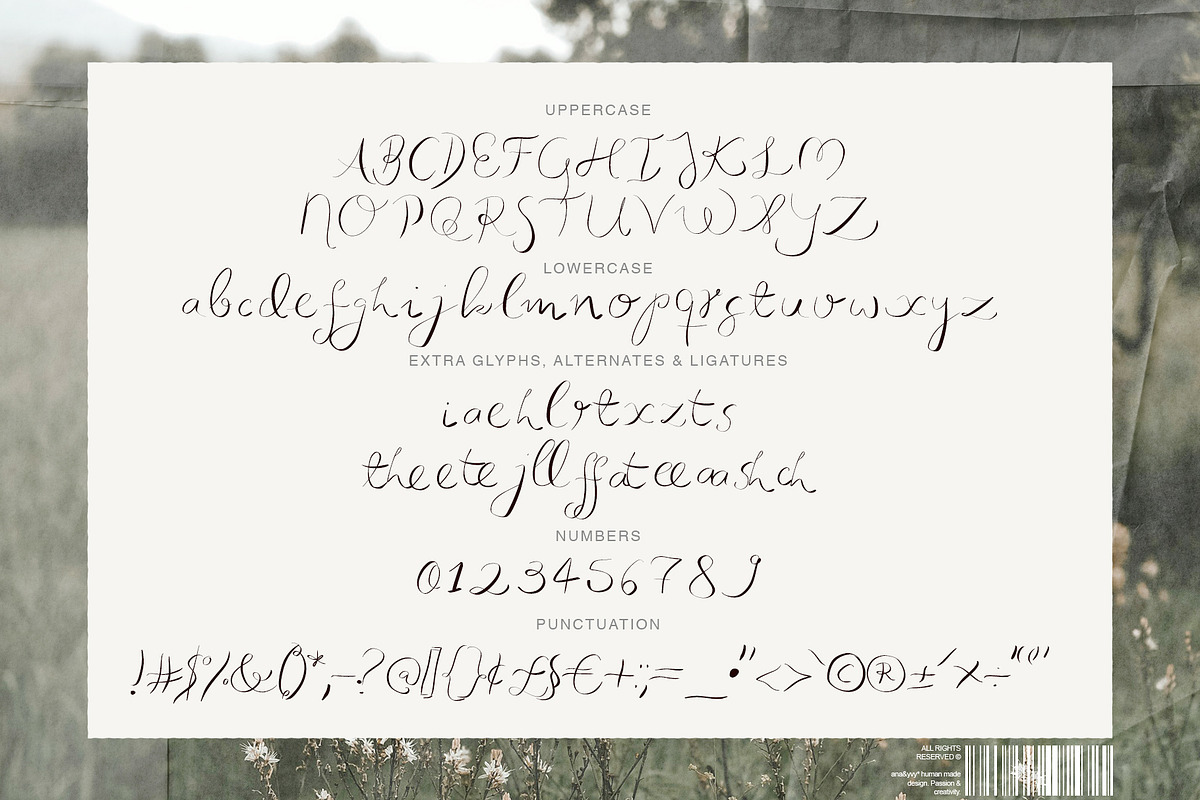 UPPERCASE
ABCDEFGHIJKLM
NOPQRSTUVWXYZ
LOWERCASE
abcdefghijklmnopqrstuvwxyz
EXTRA GLYPHS, ALTERNATES & LIGATURES
iaehlrtxzts
theete jll ffateeoashch
NUMBERS
0123456789
PUNCTUATION
!#$%&()*,-.?@[]{}¢£§€+:;=_•"<>`©®±´×÷"''"
ALL RIGHTS
RESERVED ©
ana&yvy® human made
design. Passion &
creativity.